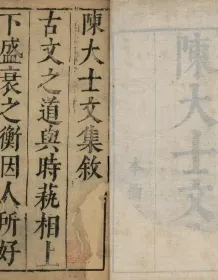 陳大士文集敘
古文之道與時藝相上
下盛衰之衡因人所好
陳大士文